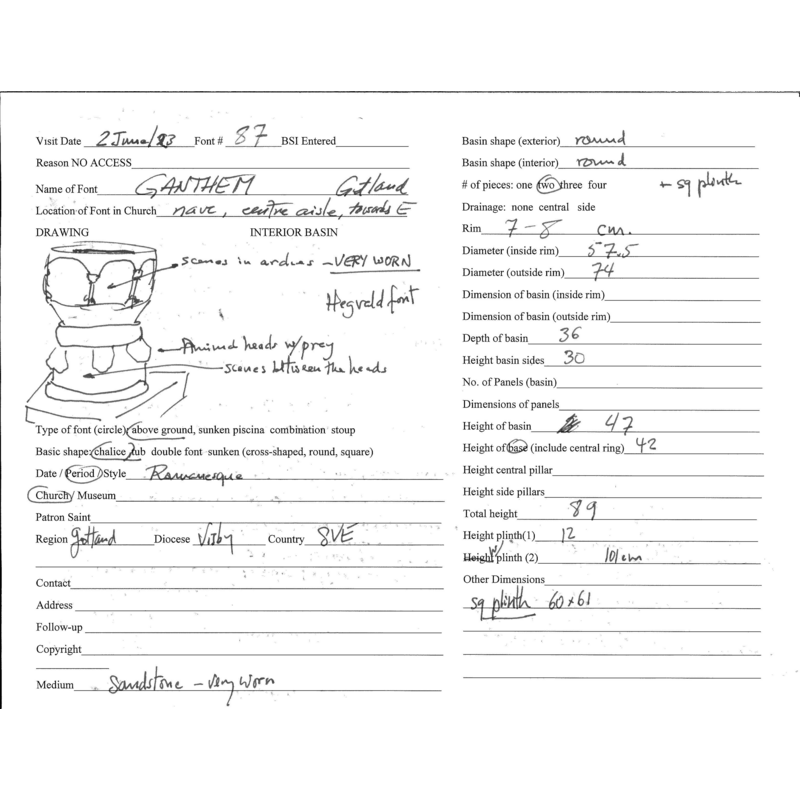 Visit Date 2 June/93 Font # 87 BSI Entered
Reason NO ACCESS
Name of Font GANTHEM Gotland
Location of Font in Church nave, centre aisle, towards E
DRAWING INTERIOR BASIN
scenes in arches - VERY WORN
Hegvald font
Animal heads w/prey
scenes between the heads
Type of font (circle) above ground, sunken piscina combination stoup
Basic shape: chalice tub double font sunken (cross-shaped, round, square)
Date / Period / Style Romanesque
Church / Museum
Patron Saint
Region Gotland Diocese Visby Country SVE
Contact
Address
Follow-up
Copyright
Medium Sandstone - very worn
Basin shape (exterior) round
Basin shape (interior) round
# of pieces: one two three four + sq plinth
Drainage: none central side
Rim 7-8 cm.
Diameter (inside rim) 57.5
Diameter (outside rim) 74
Dimension of basin (inside rim)
Dimension of basin (outside rim)
Depth of basin 36
Height basin sides 30
No. of Panels (basin)
Dimensions of panels
Height of basin 47
Height of base (include central ring) 42
Height central pillar
Height side pillars
Total height 89
Height plinth(1) 12
Height w/ plinth (2) 101cm
Other Dimensions
sq plinth 60 x 61